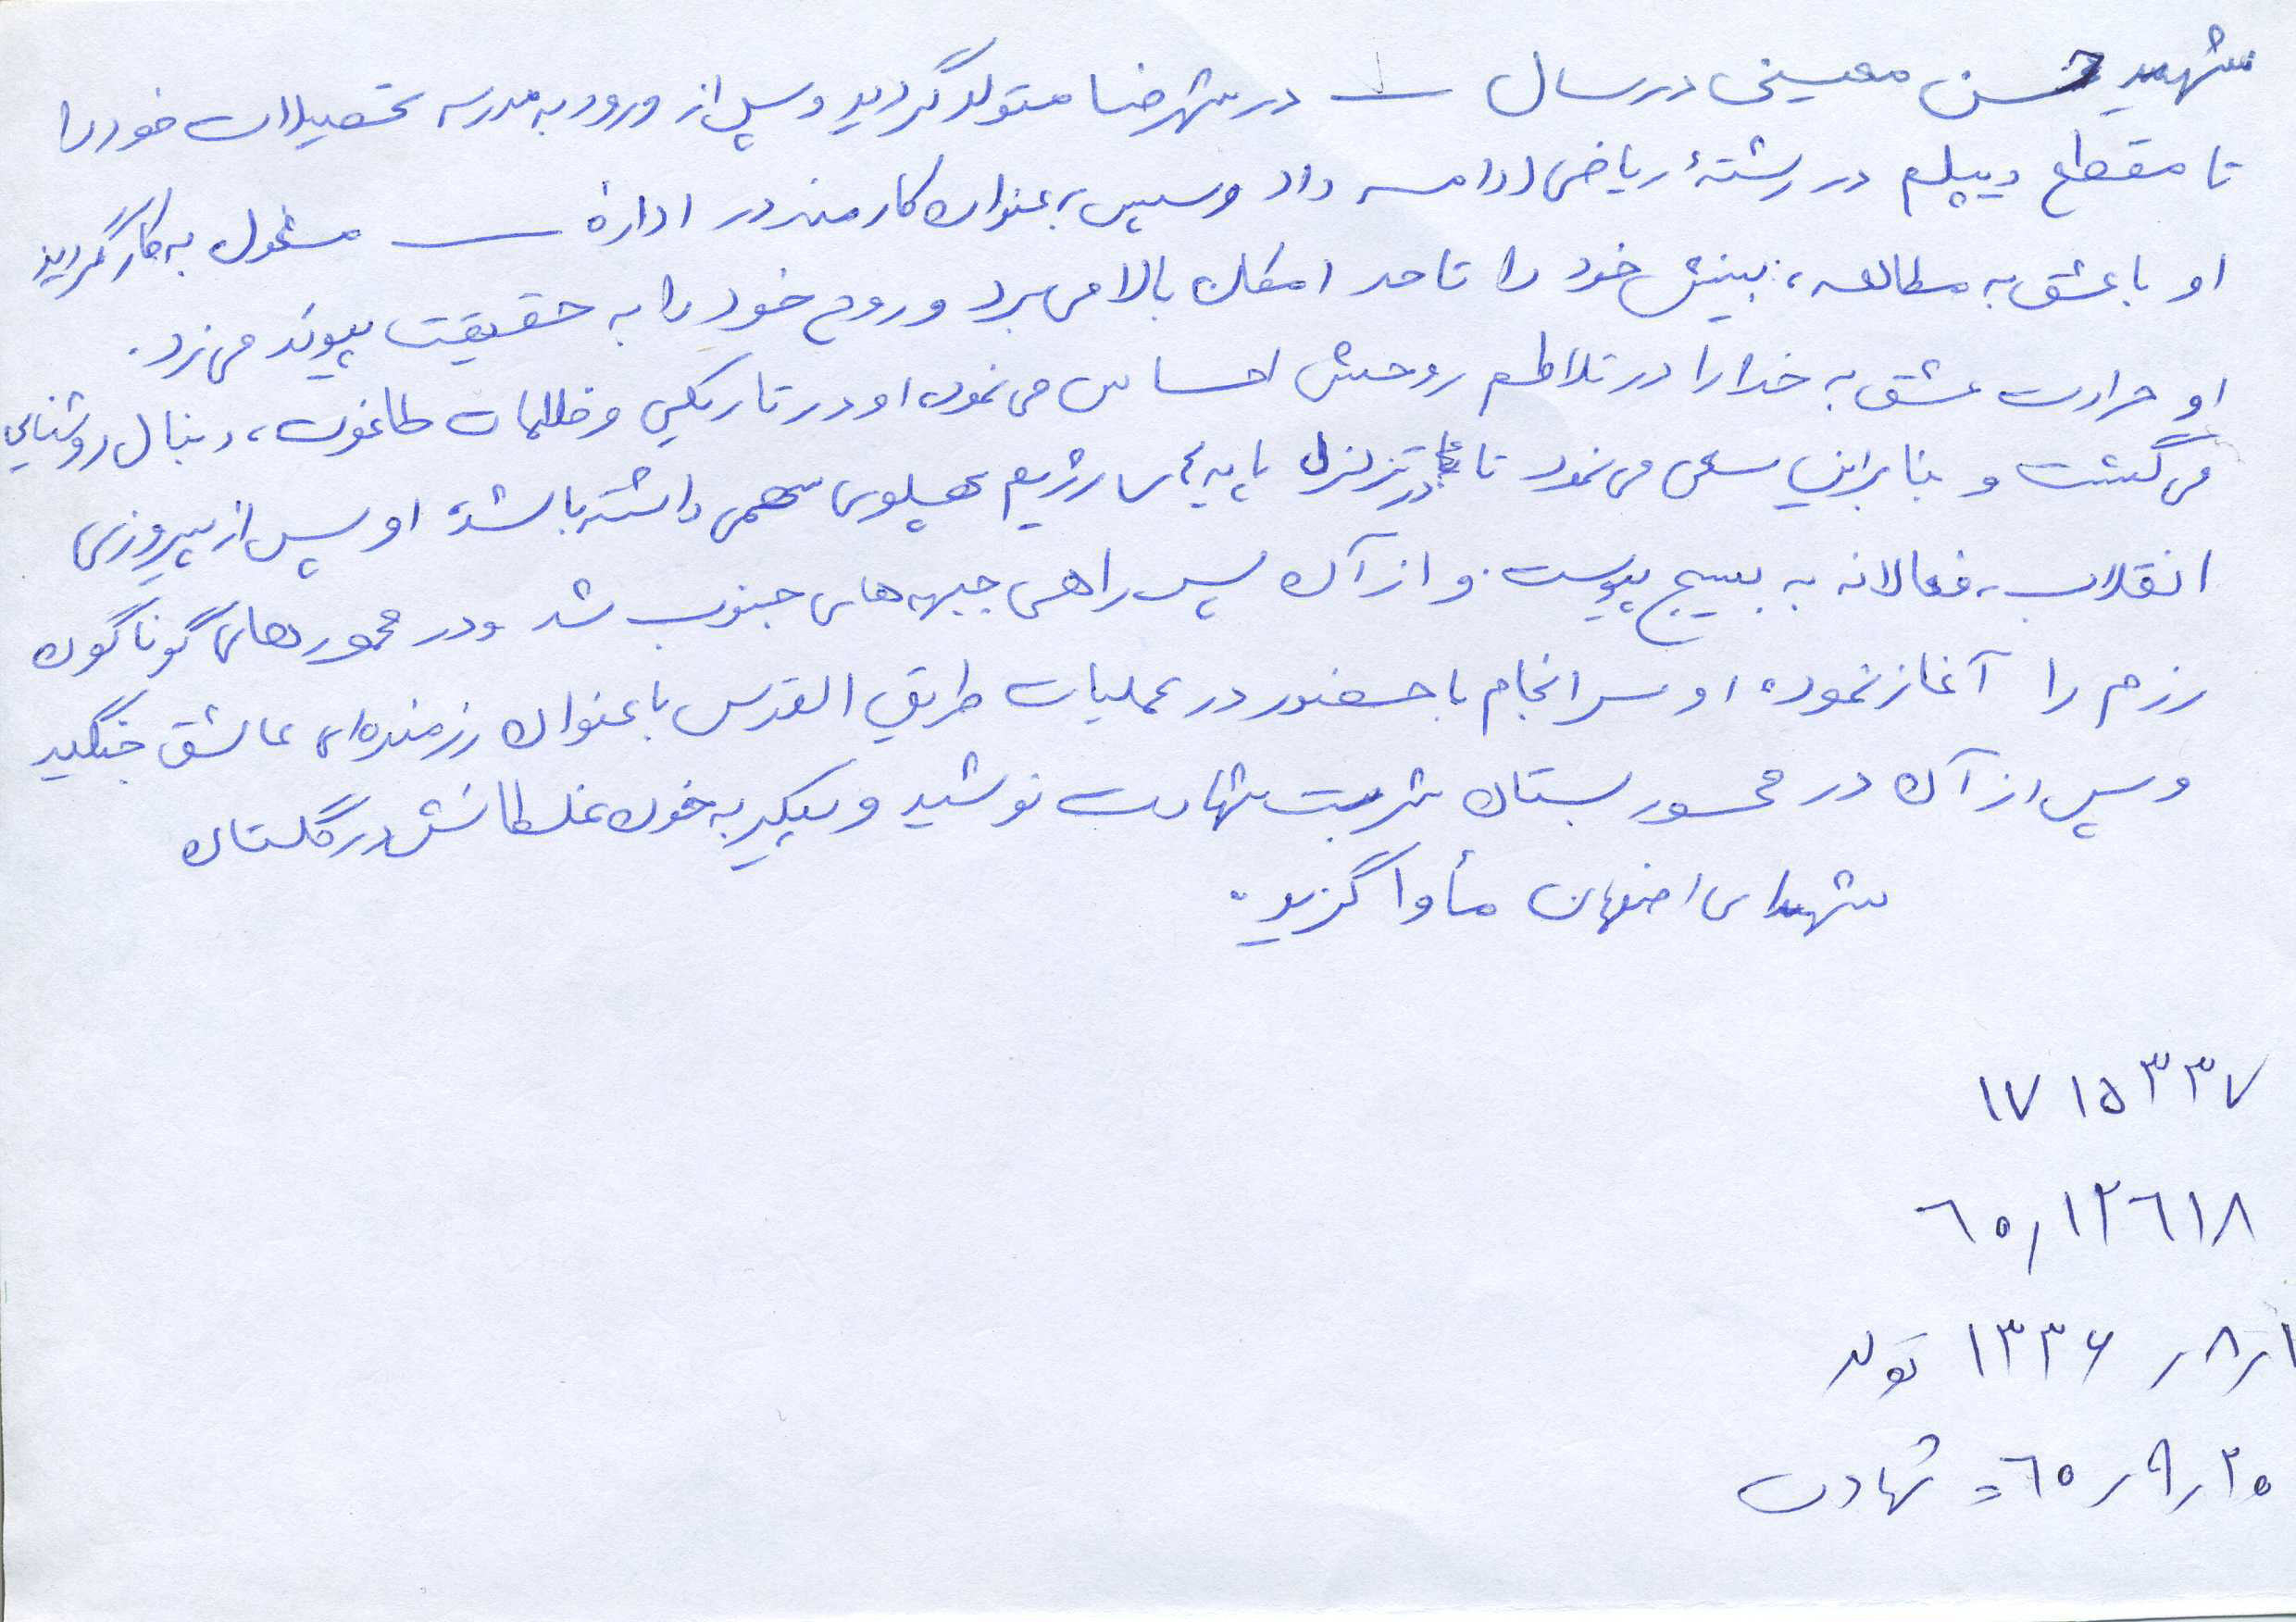 شهید حسن معینی در سال ــ در شهرضا متولد گردید و پس از ورود به مدرسه تحصیلات خود را
تا مقطع دیپلم در رشتهٔ ریاضی ادامه داد و سپس به عنوان کارمند در ادارهٔ ــــ مشغول به کار گردید
او با عشق به مطالعه، بینش خود را تا حد امکان بالا می‌برد و روح خود را به حقیقت پیوند می‌زد.
او حرارت عشق به خدا را در تلاطم روحش احساس می‌نمود، او در تاریکی و ظلمات طاغوت، دنبال روشنایی
می‌گشت و بنابراین سعی می‌نمود تا در تزلزل پایه‌های رژیم پهلوی سهمی داشته باشد، او پس از پیروزی
انقلاب، فعالانه به بسیج پیوست. و از آن پس راهی جبهه‌های جنوب شد و در محورهای گوناگون
رزم را آغاز نمود، او سرانجام با حضور در عملیات طریق القدس با عنوان رزمنده‌ای عاشق جنگید
و پس از آن در محور بستان شربت شهادت نوشید و پیکر به خون غلطانش در گلستان
شهدای اصفهان مأوا گزید.
۱۷ ۱۵۳۳۷
٦٥,١٢٦١٨
۱ر۸ر ۱۳۳۶ تولد
۲۰ر۹ر٦۰ = شهادت